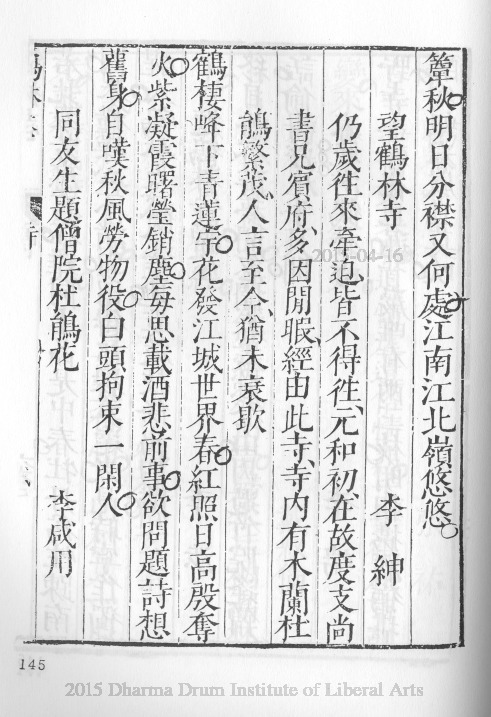 簟秋明日分襟又何處江南江北嶺悠悠
望鶴林寺 李紳
仍歲往來牽迫皆不得往元和初在故度支尚
書兄賓府多因閒暇經由此寺寺內有木蘭杜
鵑繁茂人言至今猶未衰歇
鶴棲峰下青蓮宇花發江城世界春紅照日高殷奪
火紫凝霞曙瑩銷塵每思載酒悲前事欲問題詩想
舊身自嘆秋風勞物役白頭拘束一閑人
同友生題僧院杜鵑花 李咸用
145
2015-04-16
2015 Dharma Drum Institute of Liberal Arts